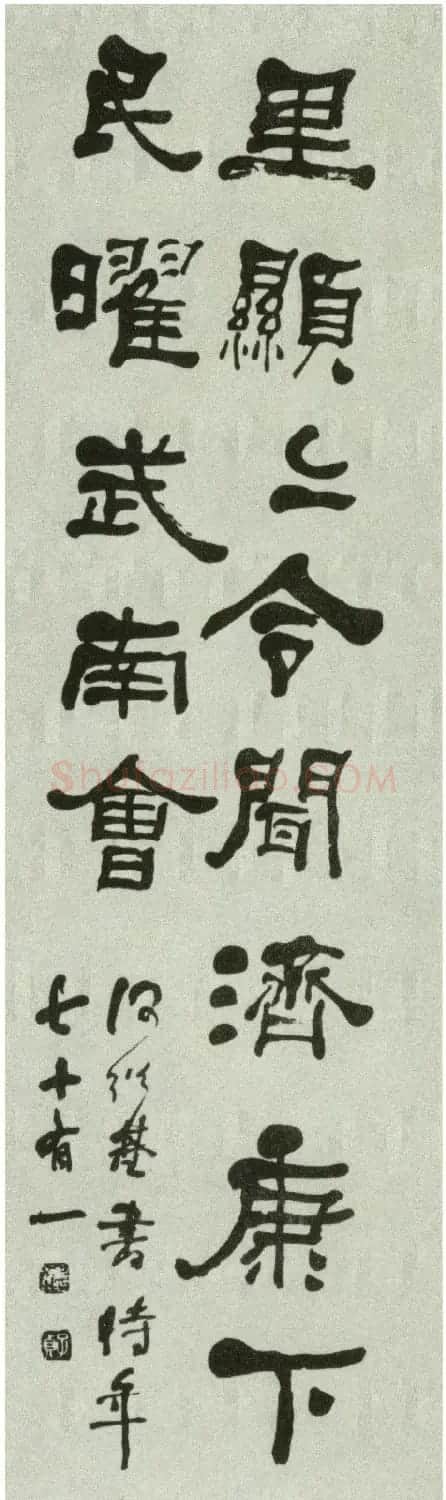 里顯=令聞濟康下
民曜武南會
何紹基書時年
七十有一
Shufaziliao.COM